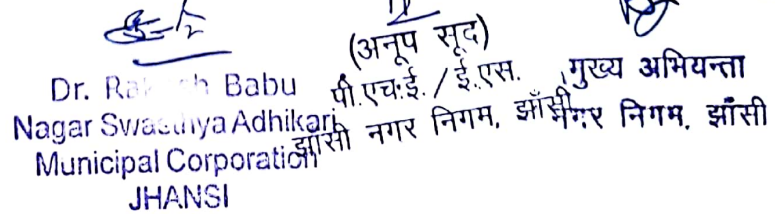 Dr. Babu
Nagar Swasthya Adhikari
Municipal Corporation
JHANSI
(अनूप सूद)
पी.एच.ई. / ई.एस.
झाँसी नगर निगम, झाँसी
मुख्य अभियन्ता
नगर निगम, झाँसी